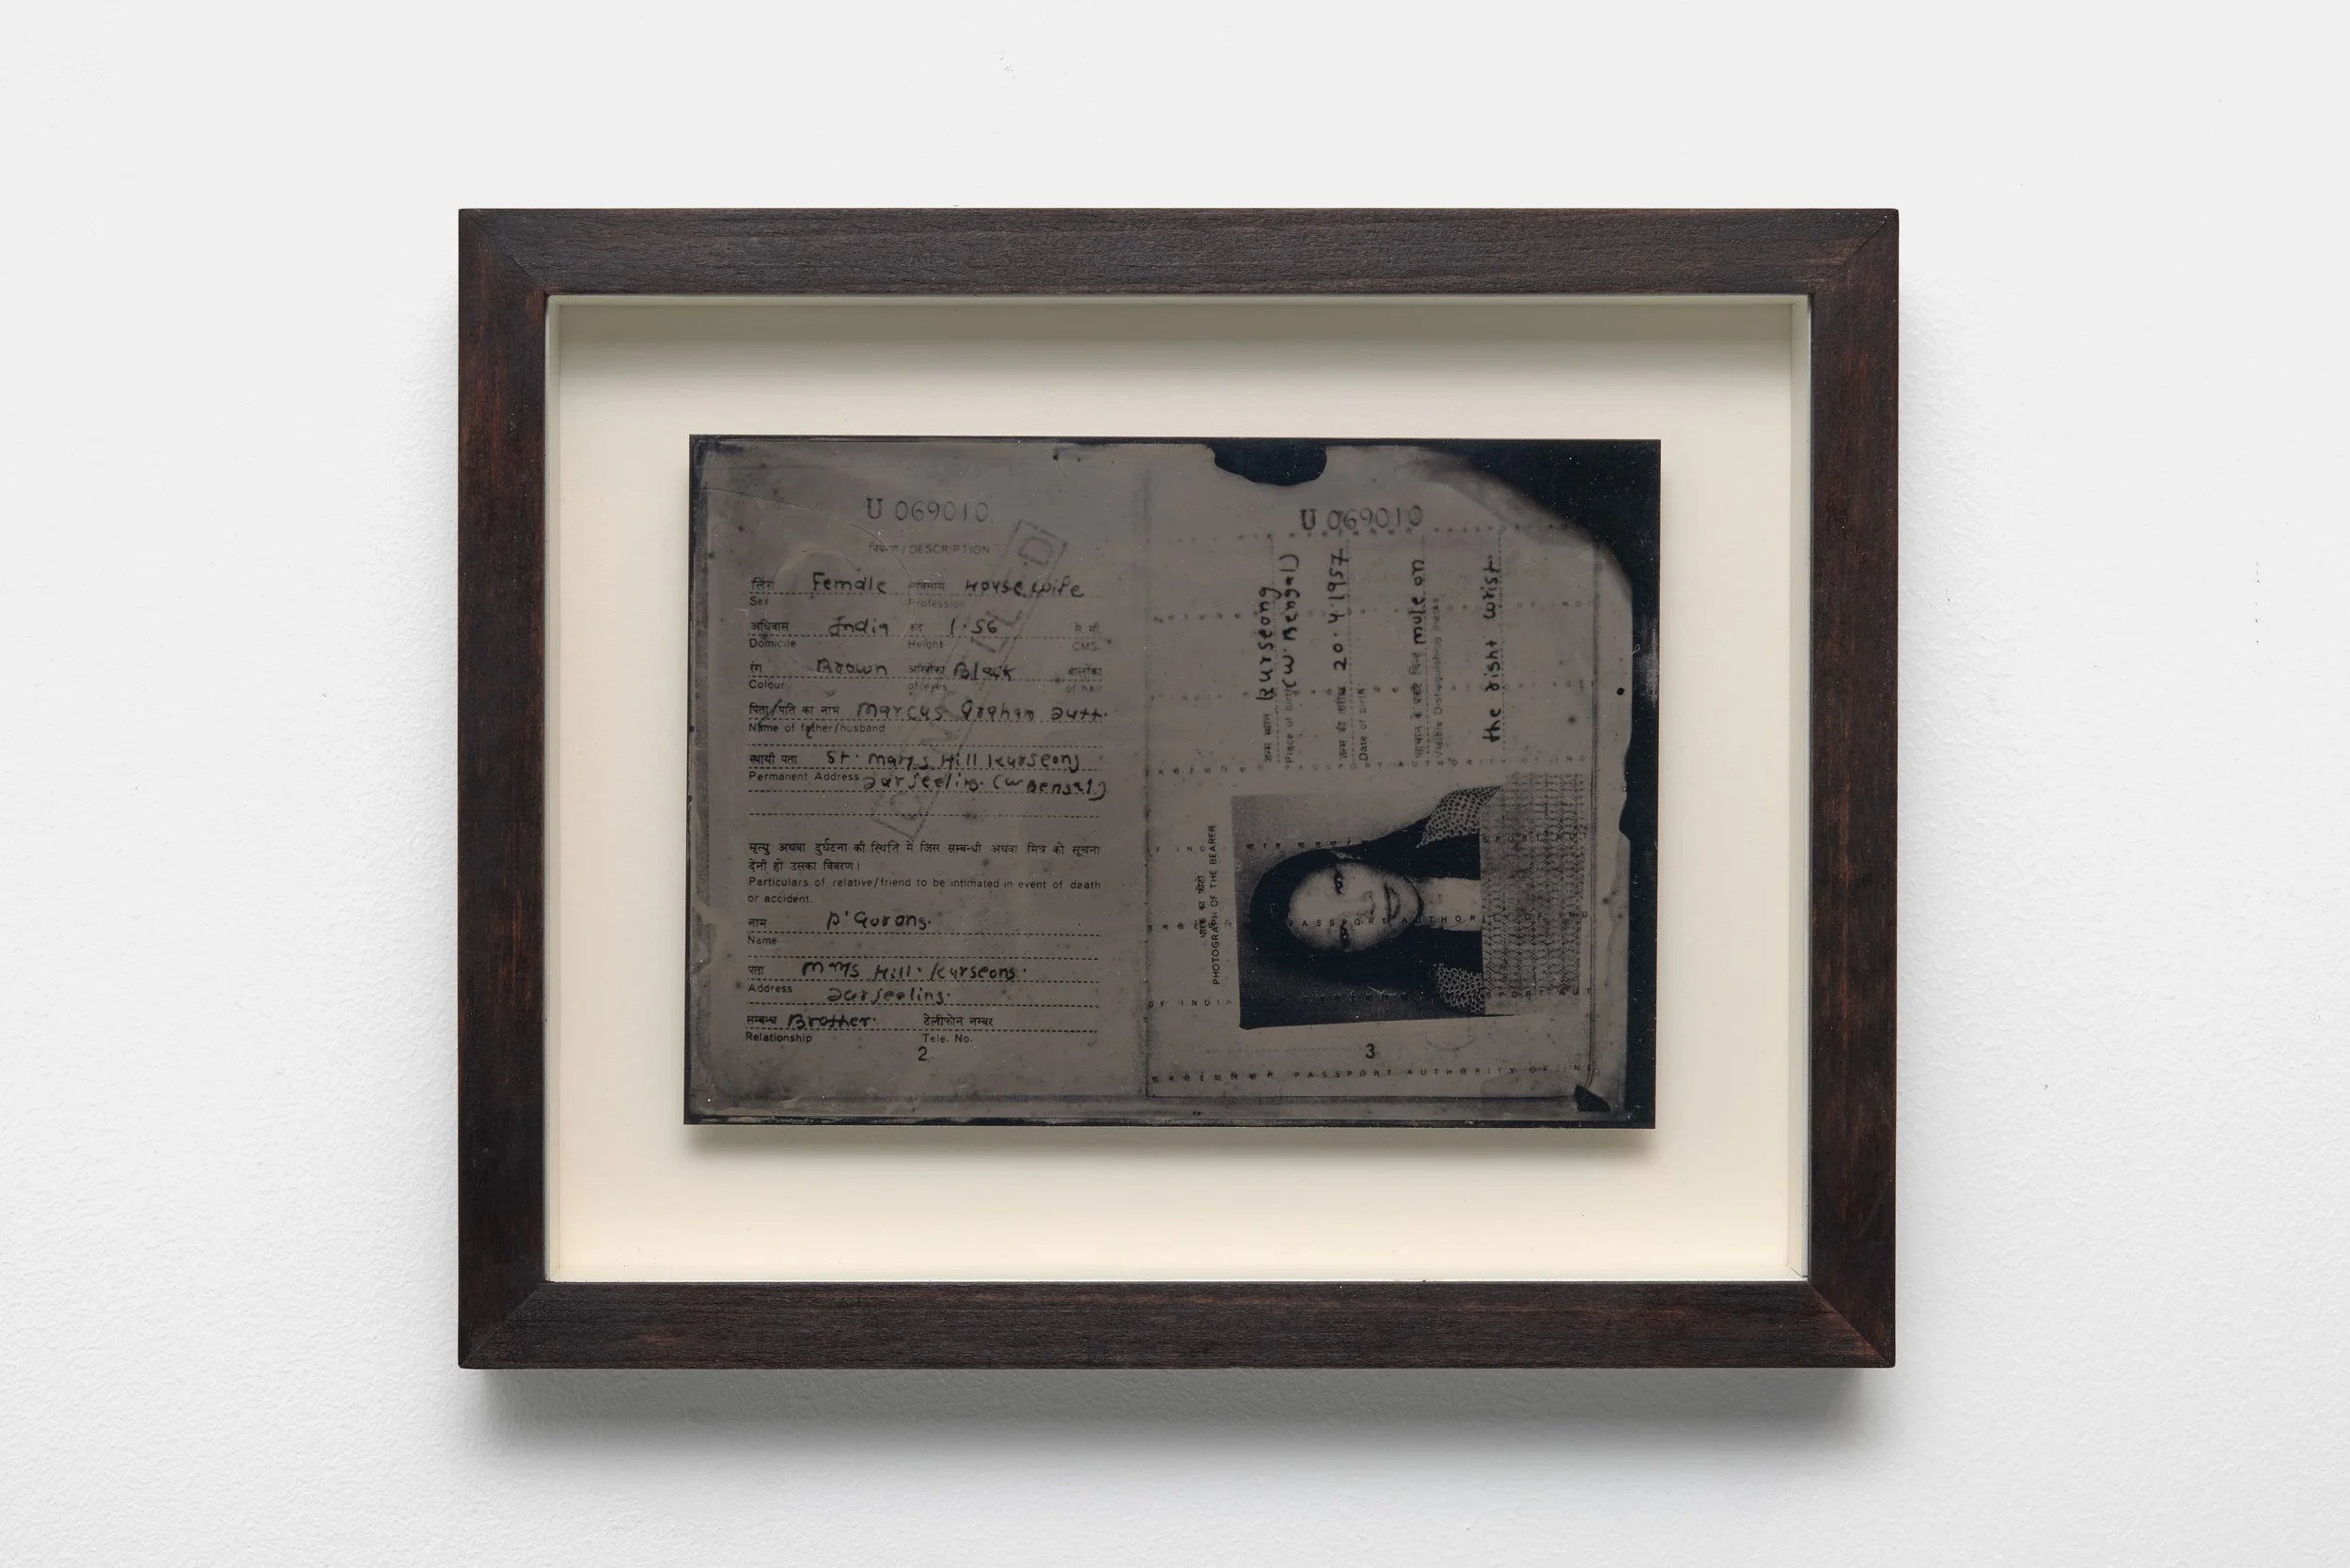 U 069010
विवरण/DESCRIPTION
लिंग Female व्यवसाय Housewife
Sex Profession
अधिवास India कद 1.56 से. मी.
Domicile Height CMS.
रंग Brown आंखोंका Black बालोंका
Colour of eyes of hair
पिता/पति का नाम Marcus Graham Dutt.
Name of father/husband
स्थायी पता St. Mary's Hill Kurseong
Permanent Address Darjeeling. (W Bengal)
CANCELLED
मृत्यु अथवा दुर्घटना की स्थिति में जिस सम्बन्धी अथवा मित्र को सूचना
देनी हो उसका विवरण।
Particulars of relative/friend to be intimated in event of death
or accident.
नाम P' Gurang.
Name
पता Mary's Hill. Kurseong.
Address Darjeeling.
सम्बन्ध Brother. टेलीफोन नम्बर
Relationship Tele. No.
2
U 069010
जन्म स्थान Kurseong
Place of birth (W. Bengal)
जन्म की तारीख 20.4.1957
Date of birth
पहचान के प्रकट चिन्ह mole on
Visible Distinguishing marks
the right wrist
धारक का फोटो
PHOTOGRAPH OF THE BEARER
PASSPORT AUTHORITY OF IND
OF INDIA
3
PASSPORT AUTHORITY OF IN